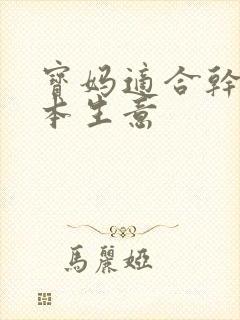 寶媽適合幹
本生意
馬麗婭